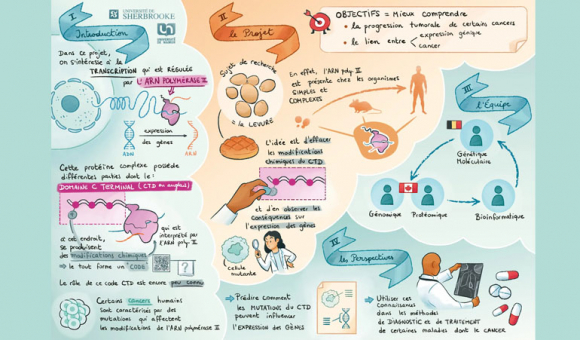 I.
UNIVERSITÉ DE
SHERBROOKE
UNIVERSITÉ
DE NAMUR
Introduction
Dans ce projet,
on s'intéresse à la
TRANSCRIPTION qui est RÉGULÉE
par L'ARN POLYMÉRASE II
expression
des gènes
ADN
ARN
Cette protéine complexe possède
différentes parties dont le :
DOMAINE C TERMINAL (CTD en anglais)
à cet endroit,
se produisent
des modifications chimiques
→ le tout forme un CODE
qui est
interprété par
l'ARN poly II
?
Le rôle de ce code CTD est encore peu connu
Certains cancers humains
sont caractérisés par des
mutations qui affectent
les modifications de l'ARN polymérase II
II
le Projet
Sujet de recherche
= la LEVURE
En effet, l'ARN poly II
est présente chez les organismes
SIMPLES et
COMPLEXES
L'idée est d'effacer
les modifications
chimiques du CTD
et d'en observer les
conséquences sur
l'expression des gènes
cellule
mutante
OBJECTIFS = Mieux comprendre
• la progression tumorale de certains cancers
• le lien entre
expression génique
cancer
III
l'Équipe
Génétique
Moléculaire
Génomique
Protéomique
Bioinformatique
IV
les Perspectives
→ Prédire comment
les MUTATIONS du CTD
peuvent influencer
l'EXPRESSION des GÈNES
→ Utiliser ces
connaissances
dans les méthodes
de DIAGNOSTIC et de TRAITEMENT
de certaines maladies dont le CANCER